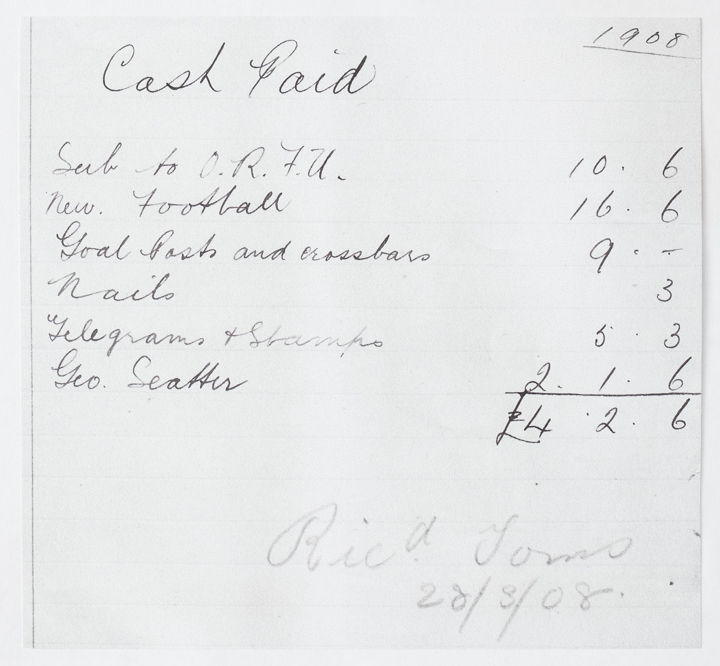 1908
Cash Paid
Sub to O.R.F.U. 10. 6
New. Football 16. 6
Goal Posts and crossbars 9. -
Nails 3
Telegrams + Stamps 5. 3
Geo. Seatter 2. 1. 6
£4. 2. 6
Ricd. Toms
28/3/08.